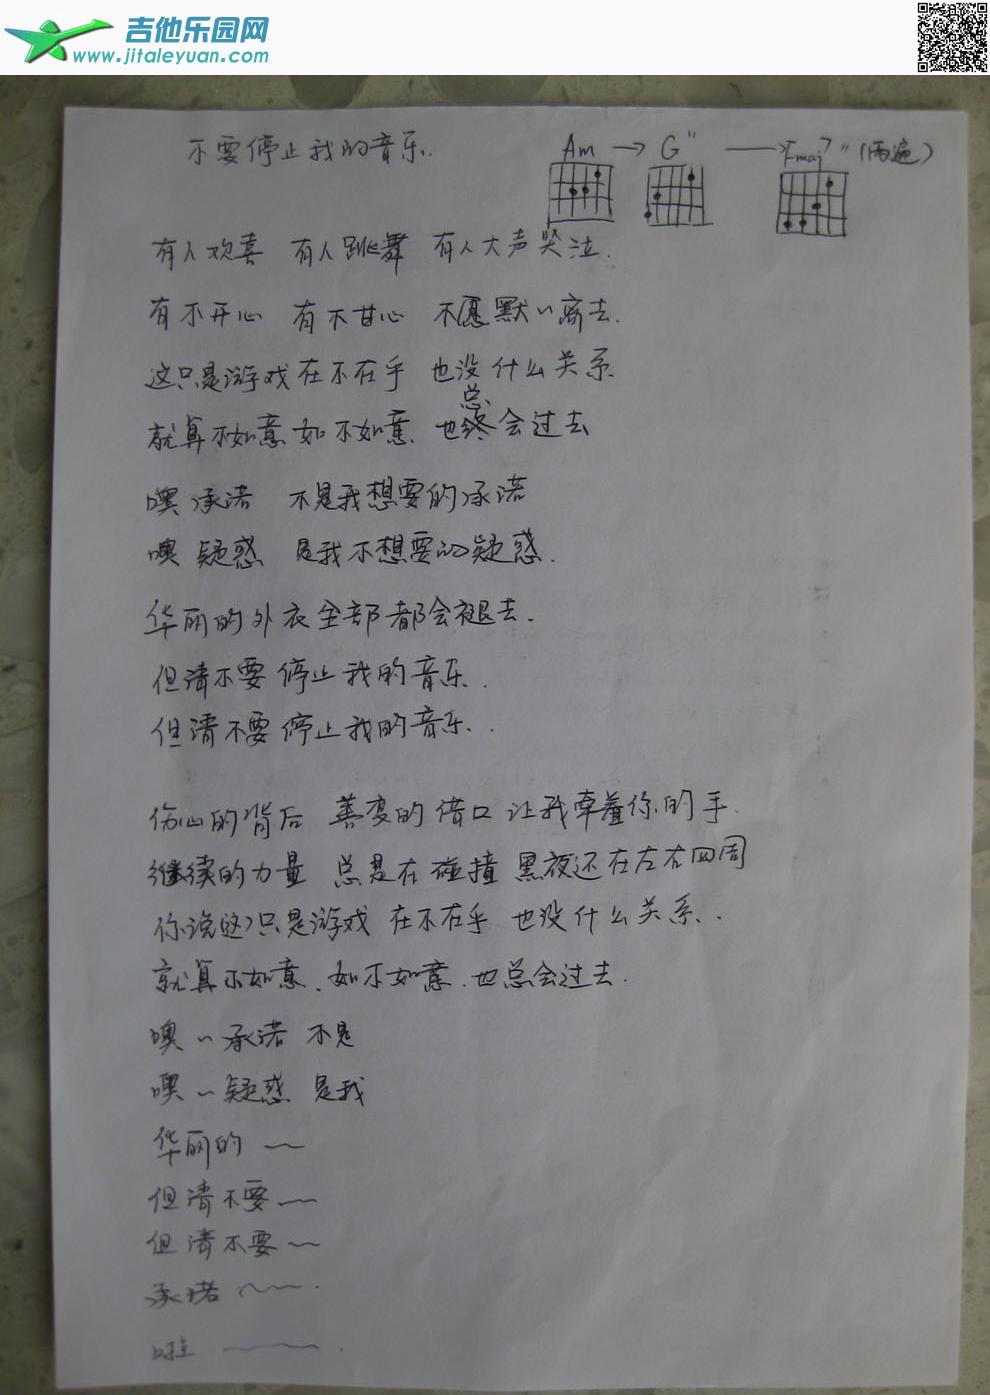 吉他乐园网
www.jitaleyuan.com
不要停止我的音乐.
Am → G" → Fmaj7" (两遍)
有人欢喜 有人跳舞 有人大声哭泣.
有不开心 有不甘心 不愿默〃离去.
这只是游戏在不在乎 也没什么关系
总
就算不如意 如不如意. 也终会过去
噢 承诺 不是我想要的承诺
噢 疑惑 是我不想要的疑惑.
华丽的外衣全部都会褪去.
但请不要停止我的音乐.
但请不要停止我的音乐..
伤心的背后 善变的借口 让我牵着你的手.
继续的力量 总是在碰撞 黑夜还在左右四周
你说这只是游戏 在不在乎 也没什么关系..
就算不如意、如不如意.也总会过去.
噢〃承诺 不是
噢〃疑惑 是我
华丽的 ~
但请不要 ~
但请不要 ~
承诺 ~~.
啦 ~~.